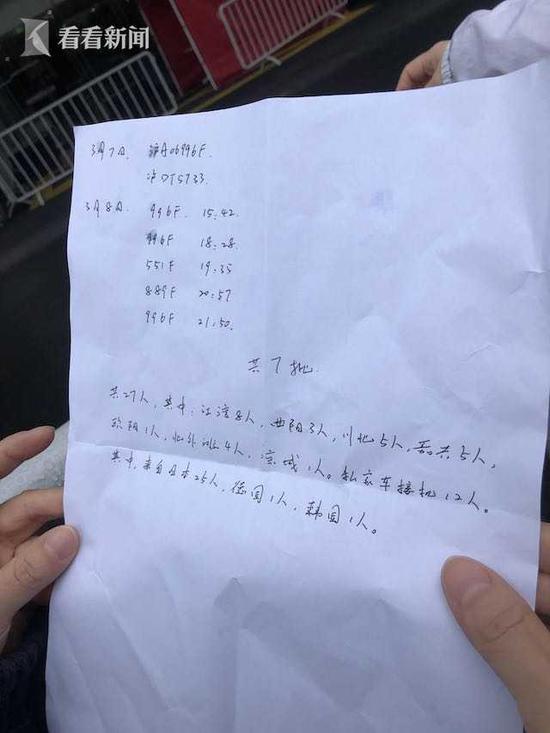 看看新闻
3月7日. 沪A06996F.
沪DT5733.
3月8日. 996F. 15:42.
996F 18:28
551F 19:35
889F 20:57
996F 21:50.
共7批.
共27人, 其中, 江湾8人, 曲阳3人, 川北5人, 嘉兴5人,
欧阳1人, 北外滩4人, 凉城1人。私家车接机12人。
其中, 来自日本25人, 德国1人, 韩国1人。